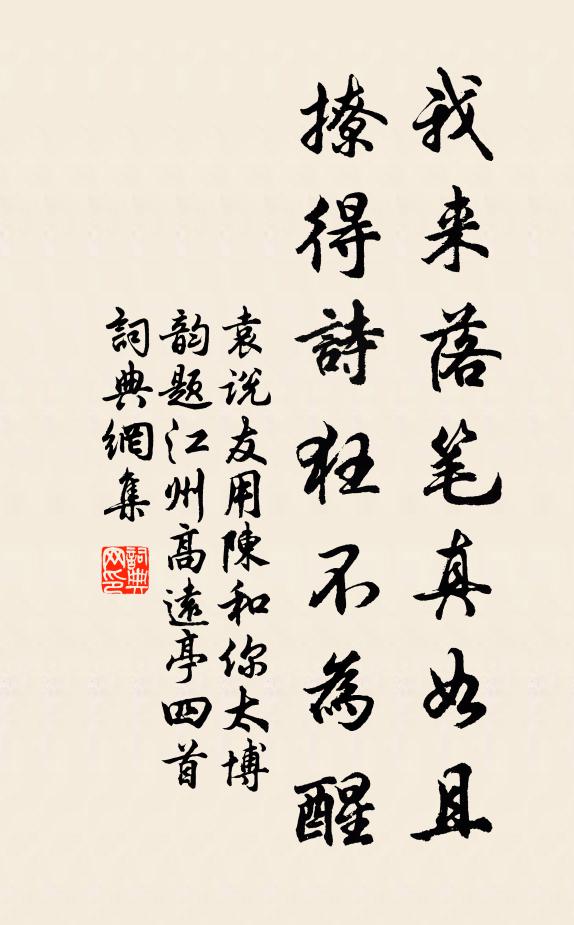 我来落笔真如且
撩得詩狂不為醒
袁说友用陳和你太博
韵题江州高遠亭四首
詞典網集
詞典网印